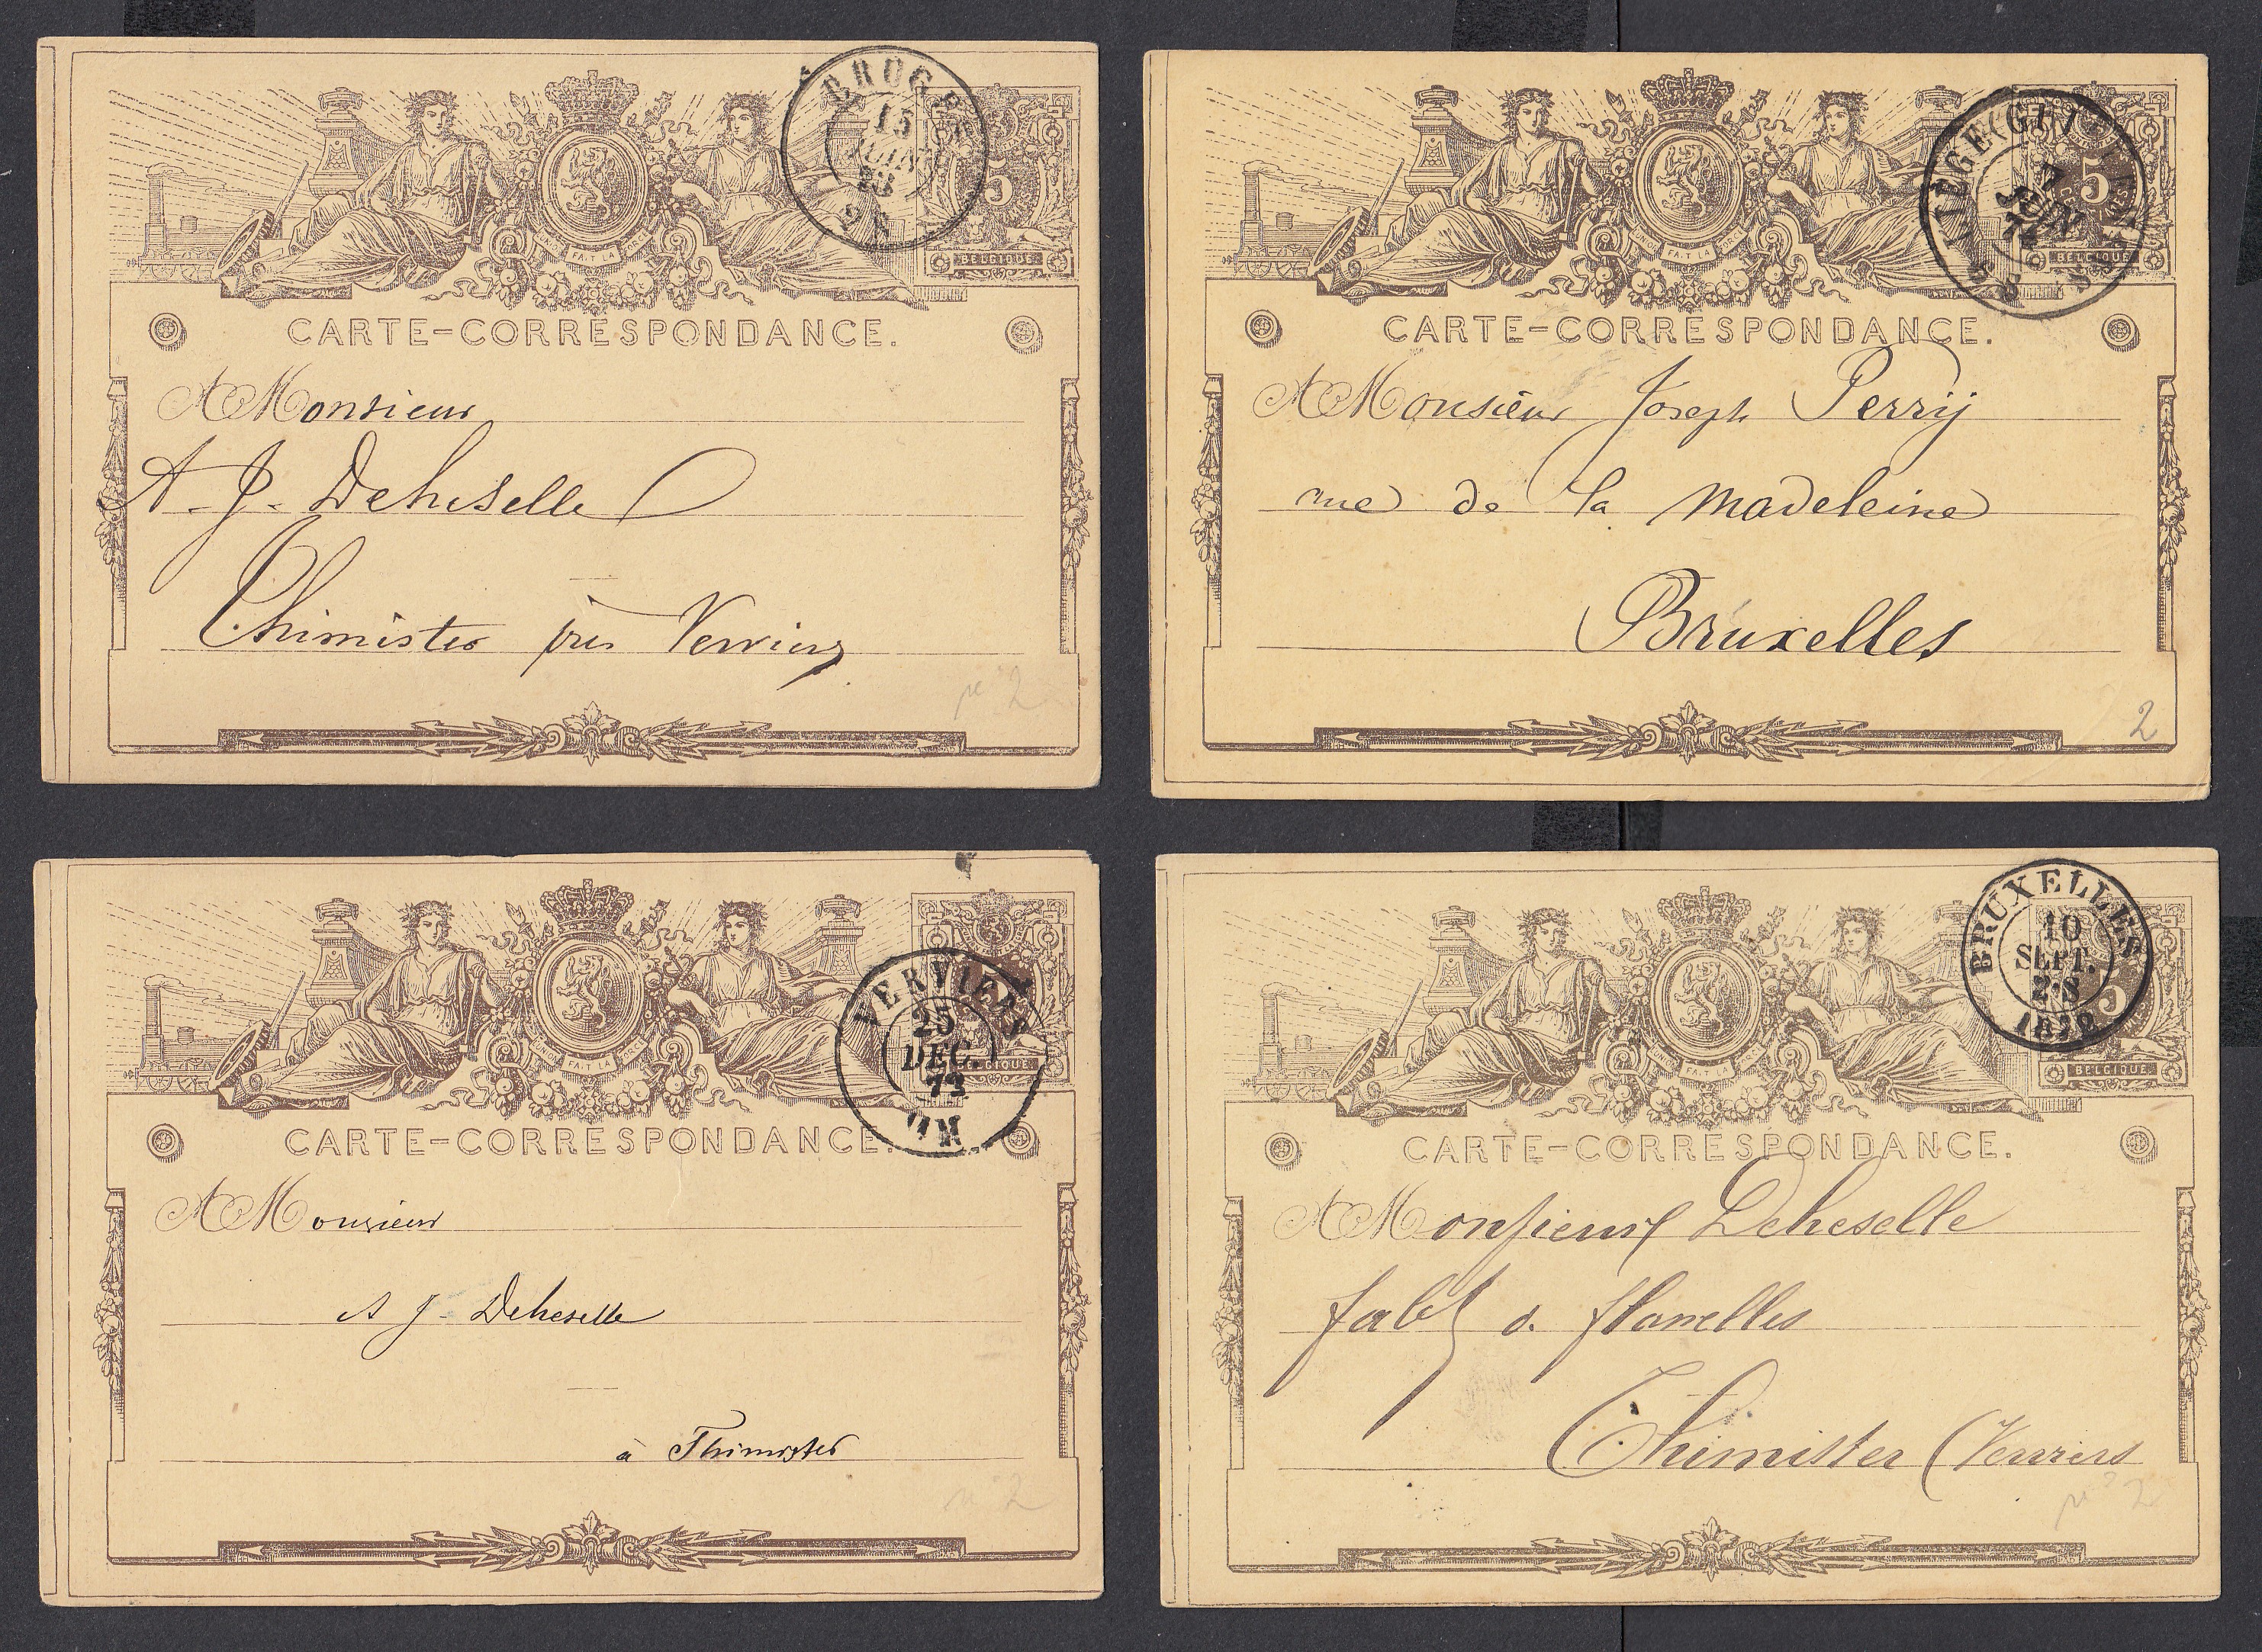 BRUGES
15
JUIN
73
UNION FAIT LA FORCE
5
BELGIQUE
CARTE-CORRESPONDANCE.
A Monsieur
A. J. Deheselle
Thimister près Verviers
n° 2
LIEGE (GIN)
7
JUIN
5
FAIT LA
BELGIQUE
CARTE-CORRESPONDANCE.
A Monsieur Joseph Perrij
rue de la Madeleine
Bruxelles
2
VERVIERS
25
DEC.
72
FAIT LA
BELGIQUE
CARTE-CORRESPONDANCE.
A Monsieur
A J. Deheselle
à Thimister
n° 2
BRUXELLES
10
SEPT.
2-S
1872
5
FAIT LA
BELGIQUE
CARTE-CORRESPONDANCE.
A Monsieur Deheselle
fabt d. flanelles
Thimister (Verviers
n° 2